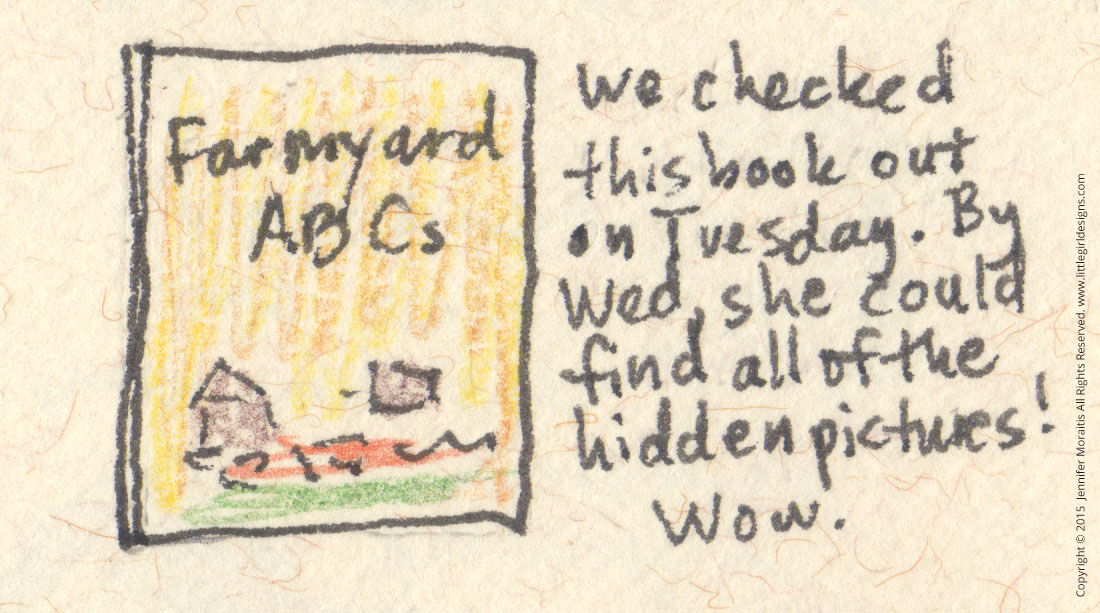 Farmyard
ABCs
We checked
this book out
on Tuesday. By
Wed, she could
find all of the
hidden pictures!
Wow.
Copyright © 2015 Jennifer Moraitis All Rights Reserved. www.littlegirldesigns.com